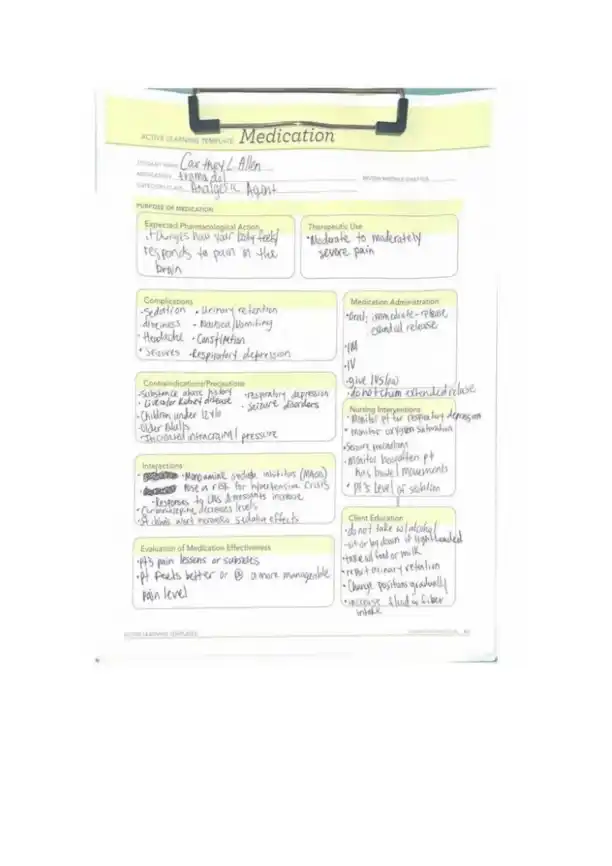 ACTIVE LEARNING TEMPLATE: Medication
STUDENT NAME Courtney L. Allen
MEDICATION tramadol
REVIEW MODULE CHAPTER
CATEGORY CLASS Analgesic Agent
PURPOSE OF MEDICATION
Expected Pharmacological Action
it changes how your body feels/
responds to pain in the
brain
Therapeutic Use
•Moderate to moderately
severe pain
Complications
-Sedation • Urinary retention
-dizziness - Nausea/Vomiting
• Headache • Constipation
• Seizures -Respiratory depression
Medication Administration
•Oral; immediate-release,
release
•IM
•IV
-give IV slow
•do not chew extended release
Contraindications/Precautions
-Substance abuse history •respiratory depression
• Liver or kidney disease • Seizure disorders
-Children under 12 y/o
-older adults
-Increased intracranial pressure
Nursing Interventions
•Monitor pt for respiratory depression
• monitor oxygen saturation
•Seizure precautions
-Monitor how often pt
has bowel movements
• pt's level of sedation
Interactions
• Monoamine oxidase inhibitors (MAOs)
• Pose a risk for hypertensive crisis
-Responses to CNS depressants increase
•Carbamazepine decreases levels
•St. Johns wort increases sedative effects
Client Education
•do not take w/alcohol
-sit or lay down if lightheaded
•take w/ food or milk
• report urinary retention
• Change positions gradually
• increase fluid & fiber
intake
Evaluation of Medication Effectiveness
-pt's pain lessens or subsides
•pt feels better or @ a more manageable
pain level
ACTIVE LEARNING TEMPLATES